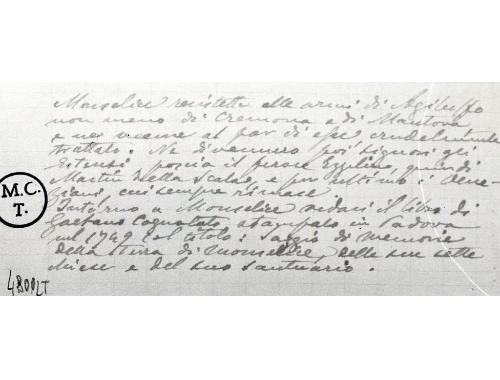 Monselice resistette alle armi di Agilulfo
non meno di Cremona e di Mantova
e ne venne al par di esse crudelmente
trattato. Ne divennero poi signori gli
Estensi poscia il feroce Ezzelino, quindi
Mastin della Scala e per ultimo i Vene-
ziani cui sempre rimase
Intorno a Monselice vedasi il libro di
Gaetano Cognolato stampato in Padova
nel 1749 col titolo: Saggio di memorie
della terra di Monselice, delle sue sette
chiese e del suo santuario.
M.C.
T.
4800LT